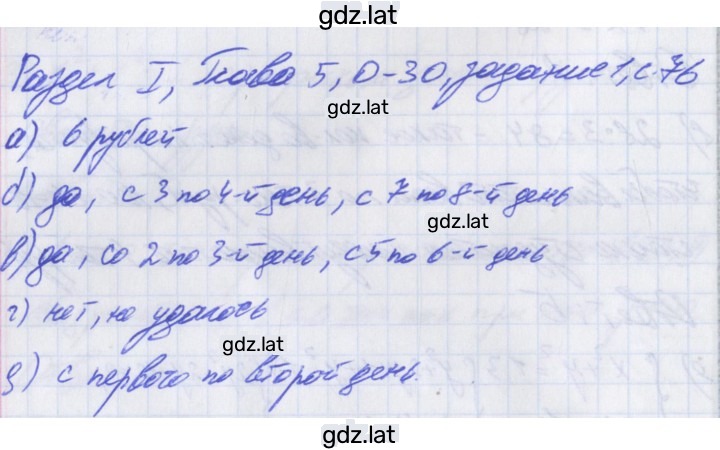 gdz.lat
Раздел I, Глава 5, О-30, задание 1, с.76
gdz.lat
а) 6 рублей
gdz.lat
б) да, с 3 по 4-й день, с 7 по 8-й день
gdz.lat
в) да, со 2 по 3-й день, с 5 по 6-й день
г) нет, не удалось
gdz.lat
д) с первого по второй день.
gdz.lat